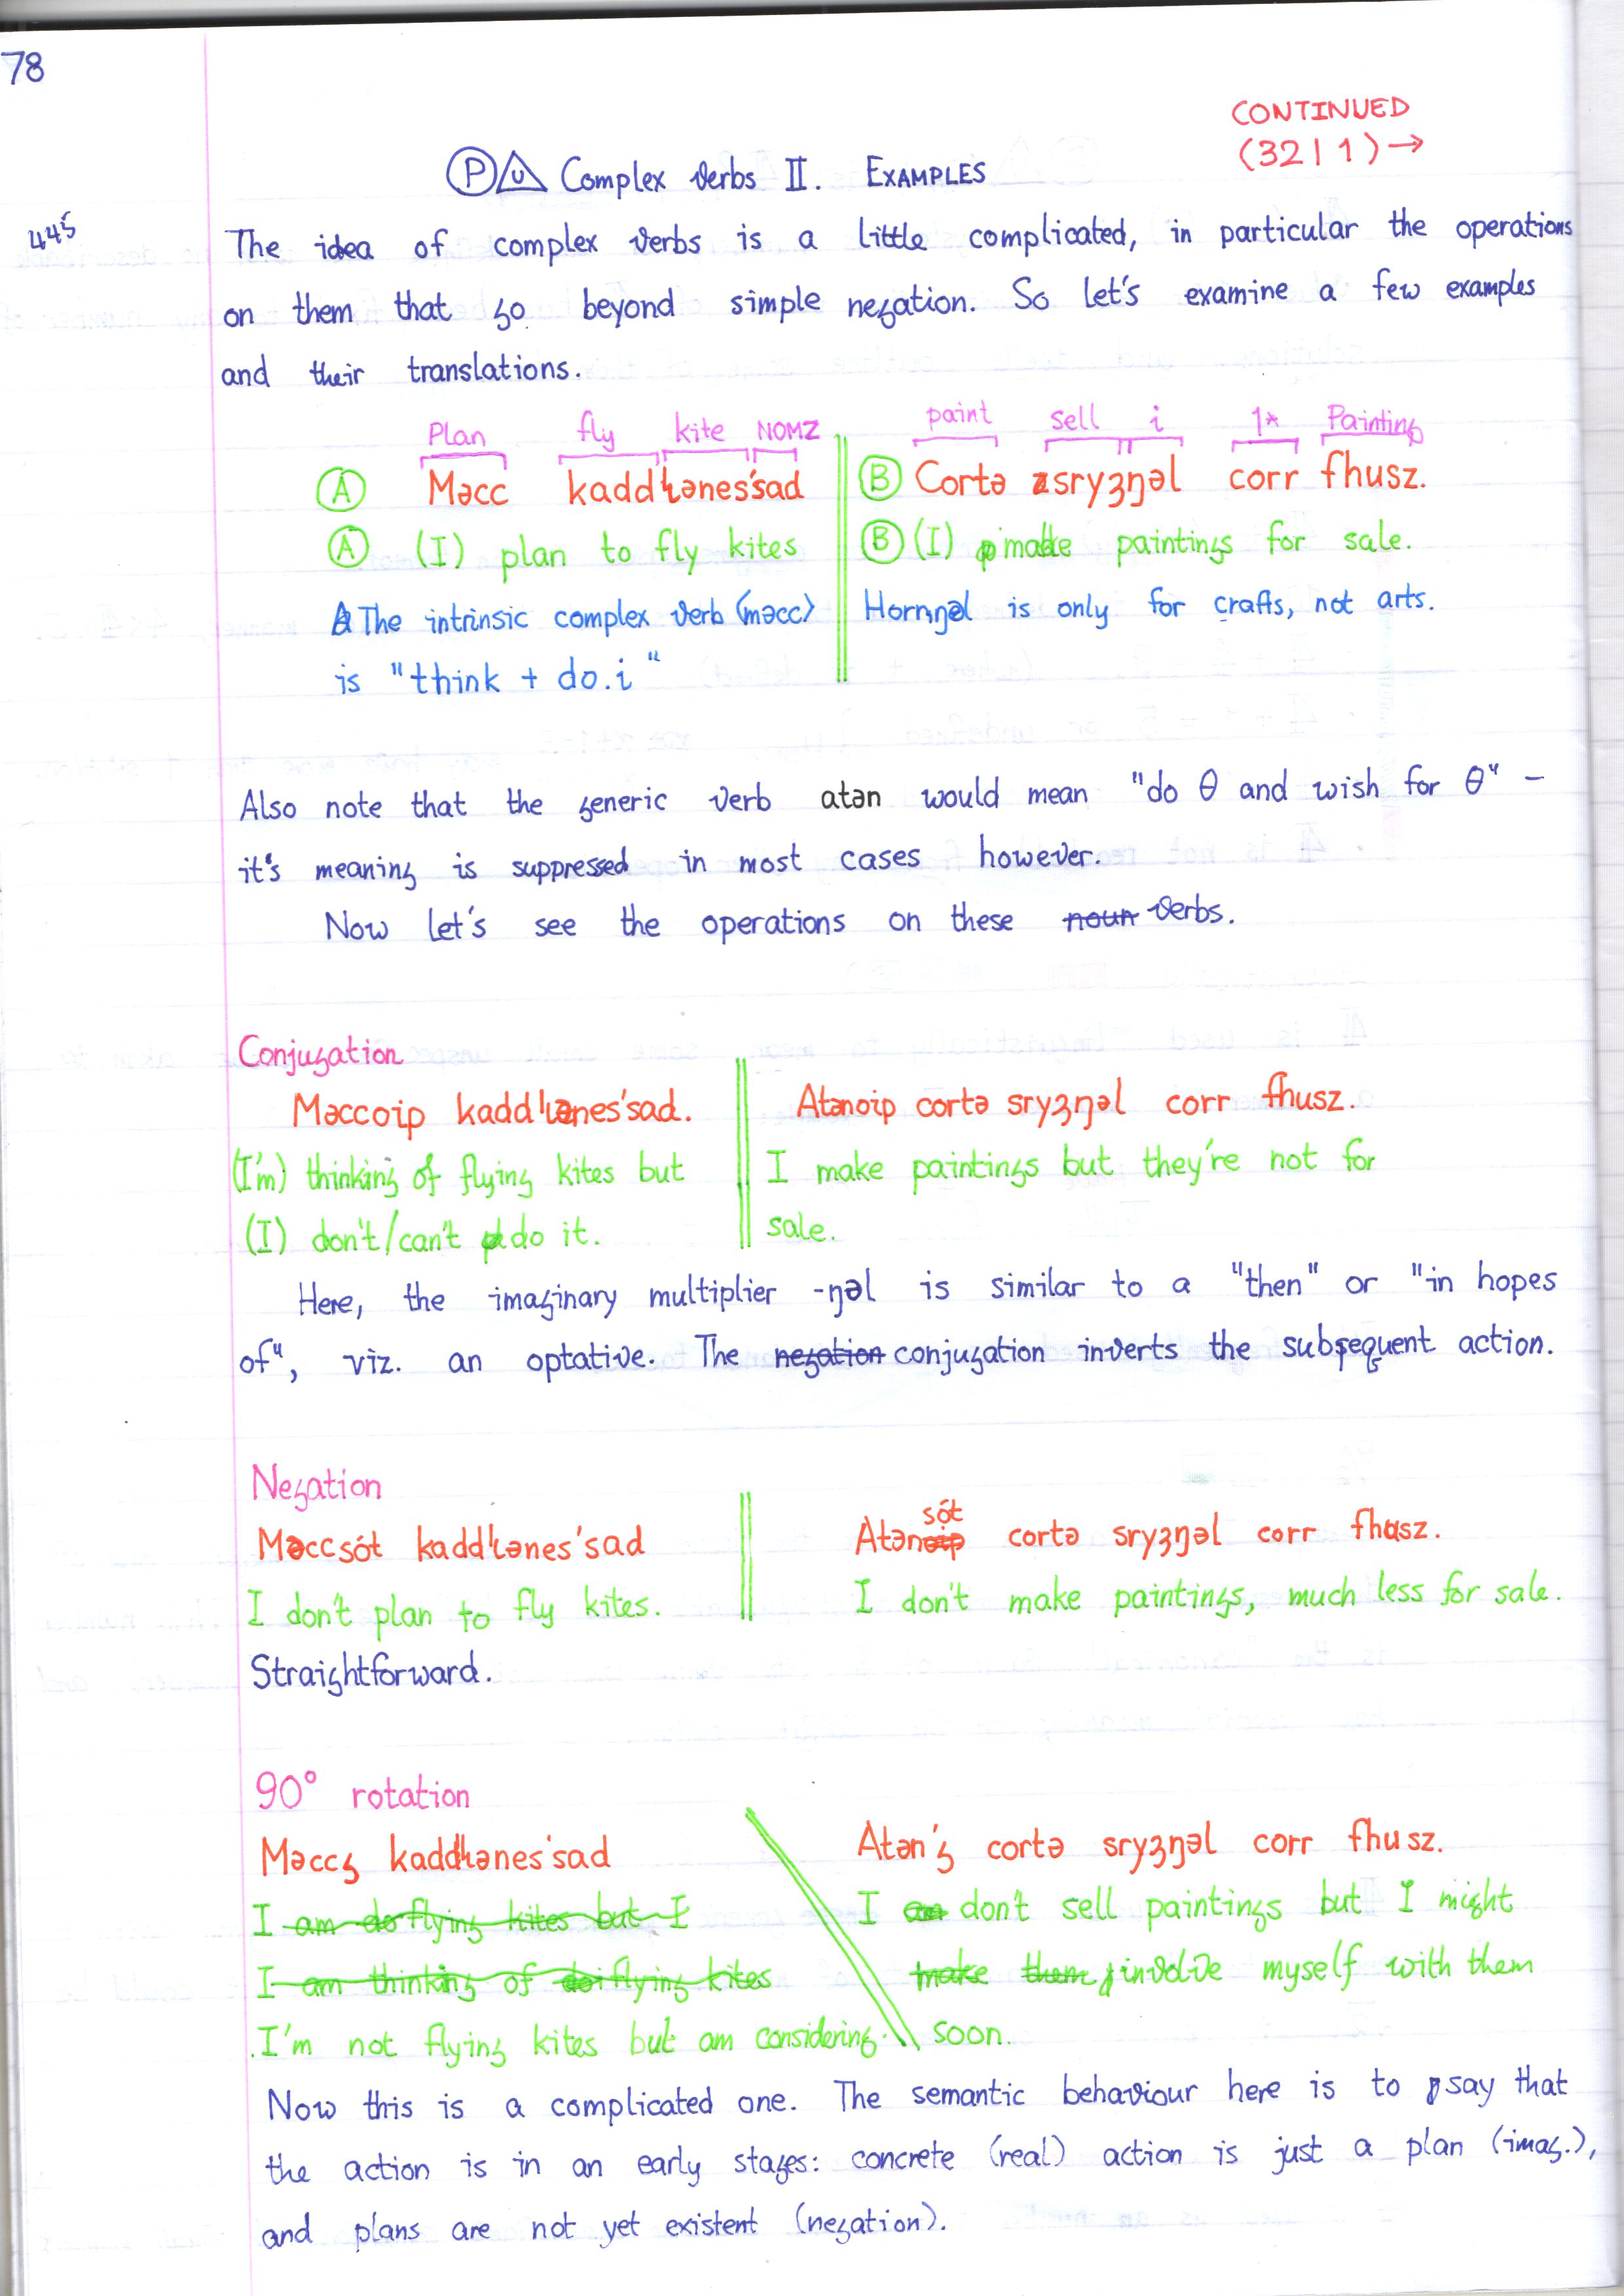 78
CONTINUED
(32|1)→
Ⓟ Complex verbs II. EXAMPLES
445
The idea of complex verbs is a little complicated, in particular the operations
on them that go beyond simple negation. So let's examine a few examples
and their translations.
Plan fly kite NOMZ
paint sell i 1* Painting
Ⓐ Məcc kaddłənes'sad
Ⓑ Cortə sryʒŋəl corr fhusz.
Ⓐ (I) plan to fly kites
Ⓑ (I) make paintings for sale.
The intrinsic complex verb (məcc)
is "think + do.i"
Hornŋəl is only for crafts, not arts.
Also note that the generic verb atən would mean "do θ and wish for θ" –
it's meaning is suppressed in most cases however.
Now let's see the operations on these noun verbs.
Conjugation
Məccoip kaddłənes'sad.
(I'm) thinking of flying kites but
(I) don't/can't do it.
Atənoip cortə sryʒŋəl corr fhusz.
I make paintings but they're not for
sale.
Here, the imaginary multiplier -ŋəl is similar to a "then" or "in hopes
of", viz. an optative. The negation conjugation inverts the subsequent action.
Negation
Məccsót kaddłənes'sad
I don't plan to fly kites.
Straightforward.
sót
Atənoip cortə sryʒŋəl corr fhusz.
I don't make paintings, much less for sale.
90° rotation
Məccg kaddłənes'sad
I am do flying kites but I
I am thinking of doi flying kites
I'm not flying kites but am considering.
Atən'g cortə sryʒŋəl corr fhusz.
I am don't sell paintings but I might
make them involve myself with them
soon.
Now this is a complicated one. The semantic behaviour here is to say that
the action is in an early stages: concrete (real) action is just a plan (imag.),
and plans are not yet existent (negation).